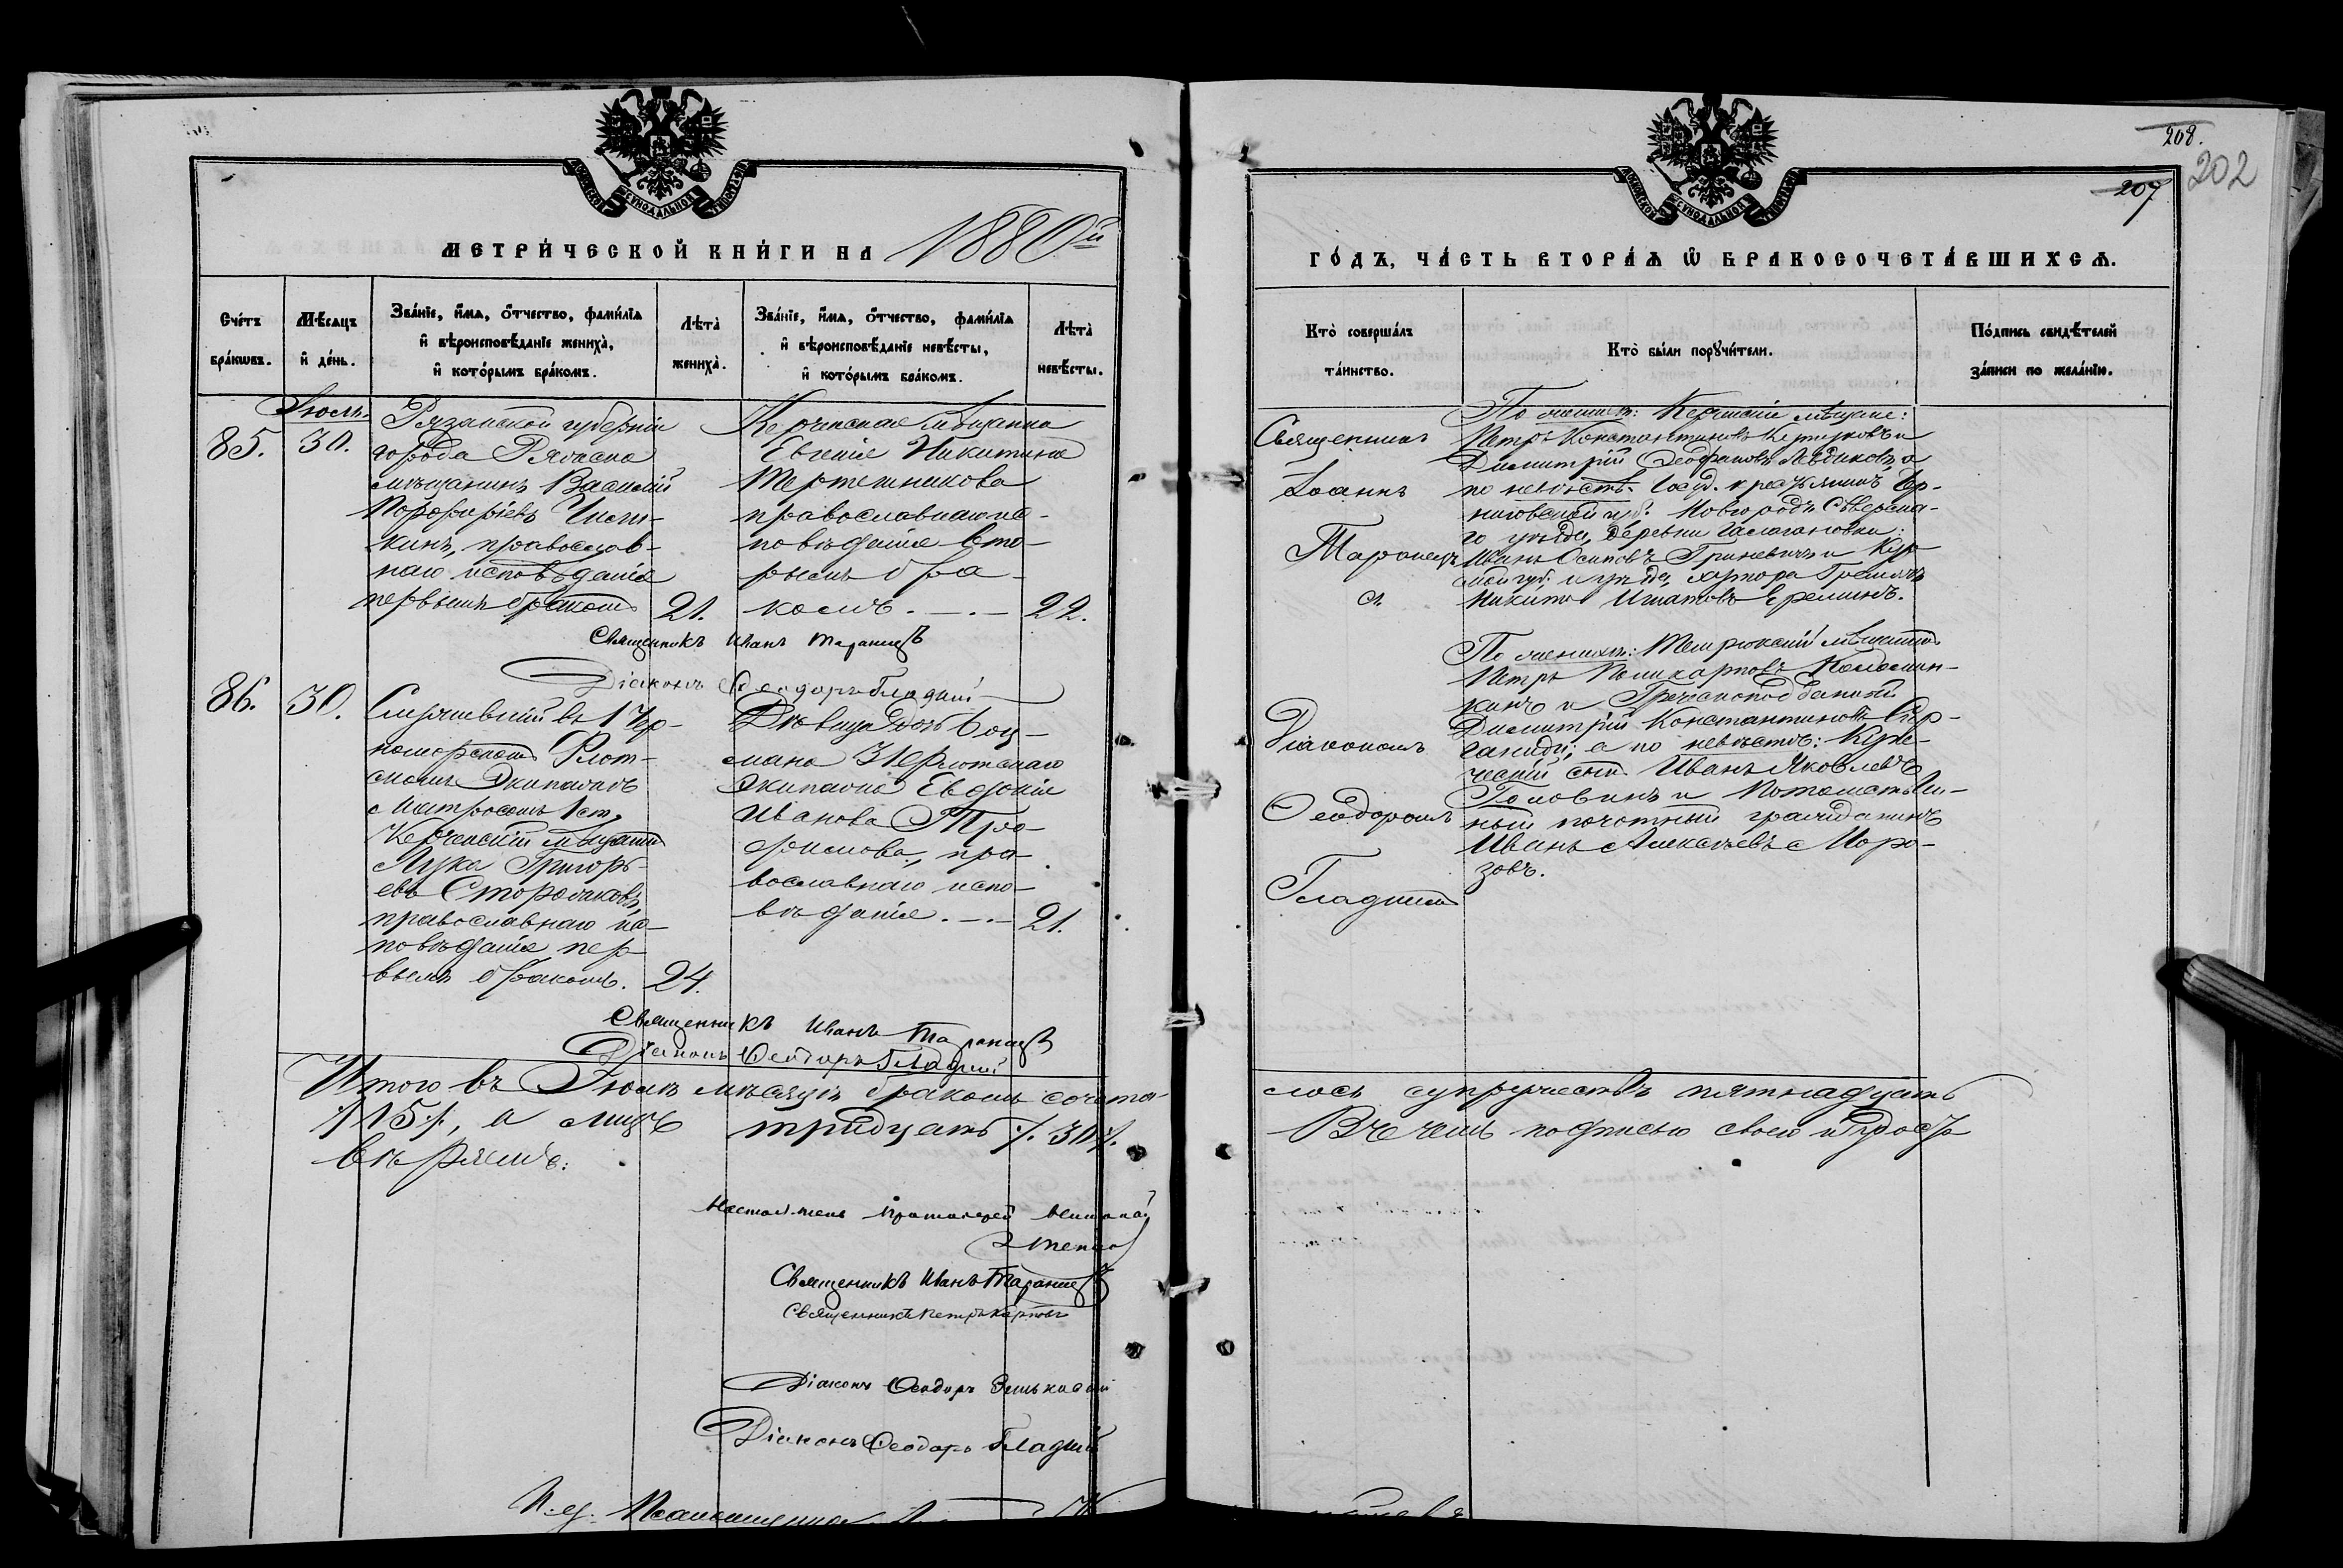 МЕТРИЧЕСКОЙ КНИГИ НА 1880й
Счетъ браковъ.
Мѣсяцъ и день.
Званіе, имя, отчество, фамилія
и вѣроисповѣданіе жениха,
и которымъ бракомъ.
Лѣта жениха.
Званіе, имя, отчество, фамилія
и вѣроисповѣданіе невѣсты,
и которымъ бракомъ.
Лѣта невѣсты.
Іюль.
85.
30.
Рязанской губерніи
города Ряжска
мѣщанинъ Василій
Порфирiевъ
православ-
наго исповѣданія
первымъ бракомъ
21.
Керченская мѣщанка
Евгенія Никитина
православнаго ис-
повѣданія вто-
рымъ бра-
комъ. —.—
22.
Священникъ Иванъ Таранецъ
Діаконъ Ѳеодоръ Гладкій
86.
30.
Служившій въ 1 Чер-
номорскомъ Флот-
скомъ Экипажѣ
Матросомъ 1 ст.
Керченскій мѣщанинъ
Лука Григорь-
евъ Сторожаковъ,
православнаго ис-
повѣданія пер-
вымъ бракомъ.
24.
Дѣвица дочь боц-
мана 3 Флотскаго
Экипажа Евдокія
Иванова Тро-
фимова, пра-
вославнаго испо-
вѣданія. —.—
21.
Священникъ Иванъ Таранецъ
Діаконъ Ѳеодоръ Гладкій
Итого въ Іюлѣ мѣсяцѣ бракомъ сочета-
/15/., а лицъ тридцать /.30/.
вѣряемъ:
Настоятель Протоіерей
Священникъ Иванъ Таранецъ
Священникъ Петръ Карповъ
Діаконъ Ѳеодоръ Зеньковскій
Діаконъ Ѳеодоръ Гладкій
208.
207
202
ГОДЪ, ЧАСТЬ ВТОРАЯ Ѡ БРАКОСОЧЕТАВШИХСЯ.
Кто совершалъ таинство.
Кто были поручители.
Подпись свидѣтелей записи по желанію.
Священникъ
Іоаннъ
Таранецъ
По женихѣ: Керченскіе мѣщане:
Петръ Константиновъ
Димитрій Ѳеофановъ а
по невѣстѣ: Госуд. крестьянинъ Чер-
ниговской губ. Новгородъ Сѣверска-
го уѣзда, деревни
Иванъ Осиповъ Гриневичъ и Кур-
ской губ. и уѣзда, хутора
Никита Игнатовъ Ереминъ.
Діаконъ
Ѳеодоромъ
Гладкимъ
По женихѣ: Темрюкскій мѣщанинъ
Петръ Поликарповъ Коломій-
кинъ и Греческоподданный
Димитрій Константиновъ
а по невѣстѣ: Купе-
ческій сынъ Иванъ Яковлевъ
Головинъ и Потомствен-
ный почотный гражданинъ
Иванъ Алексѣевъ Моро-
зовъ.
лось супружествъ пятнадцать
В чемъ подписью своею и